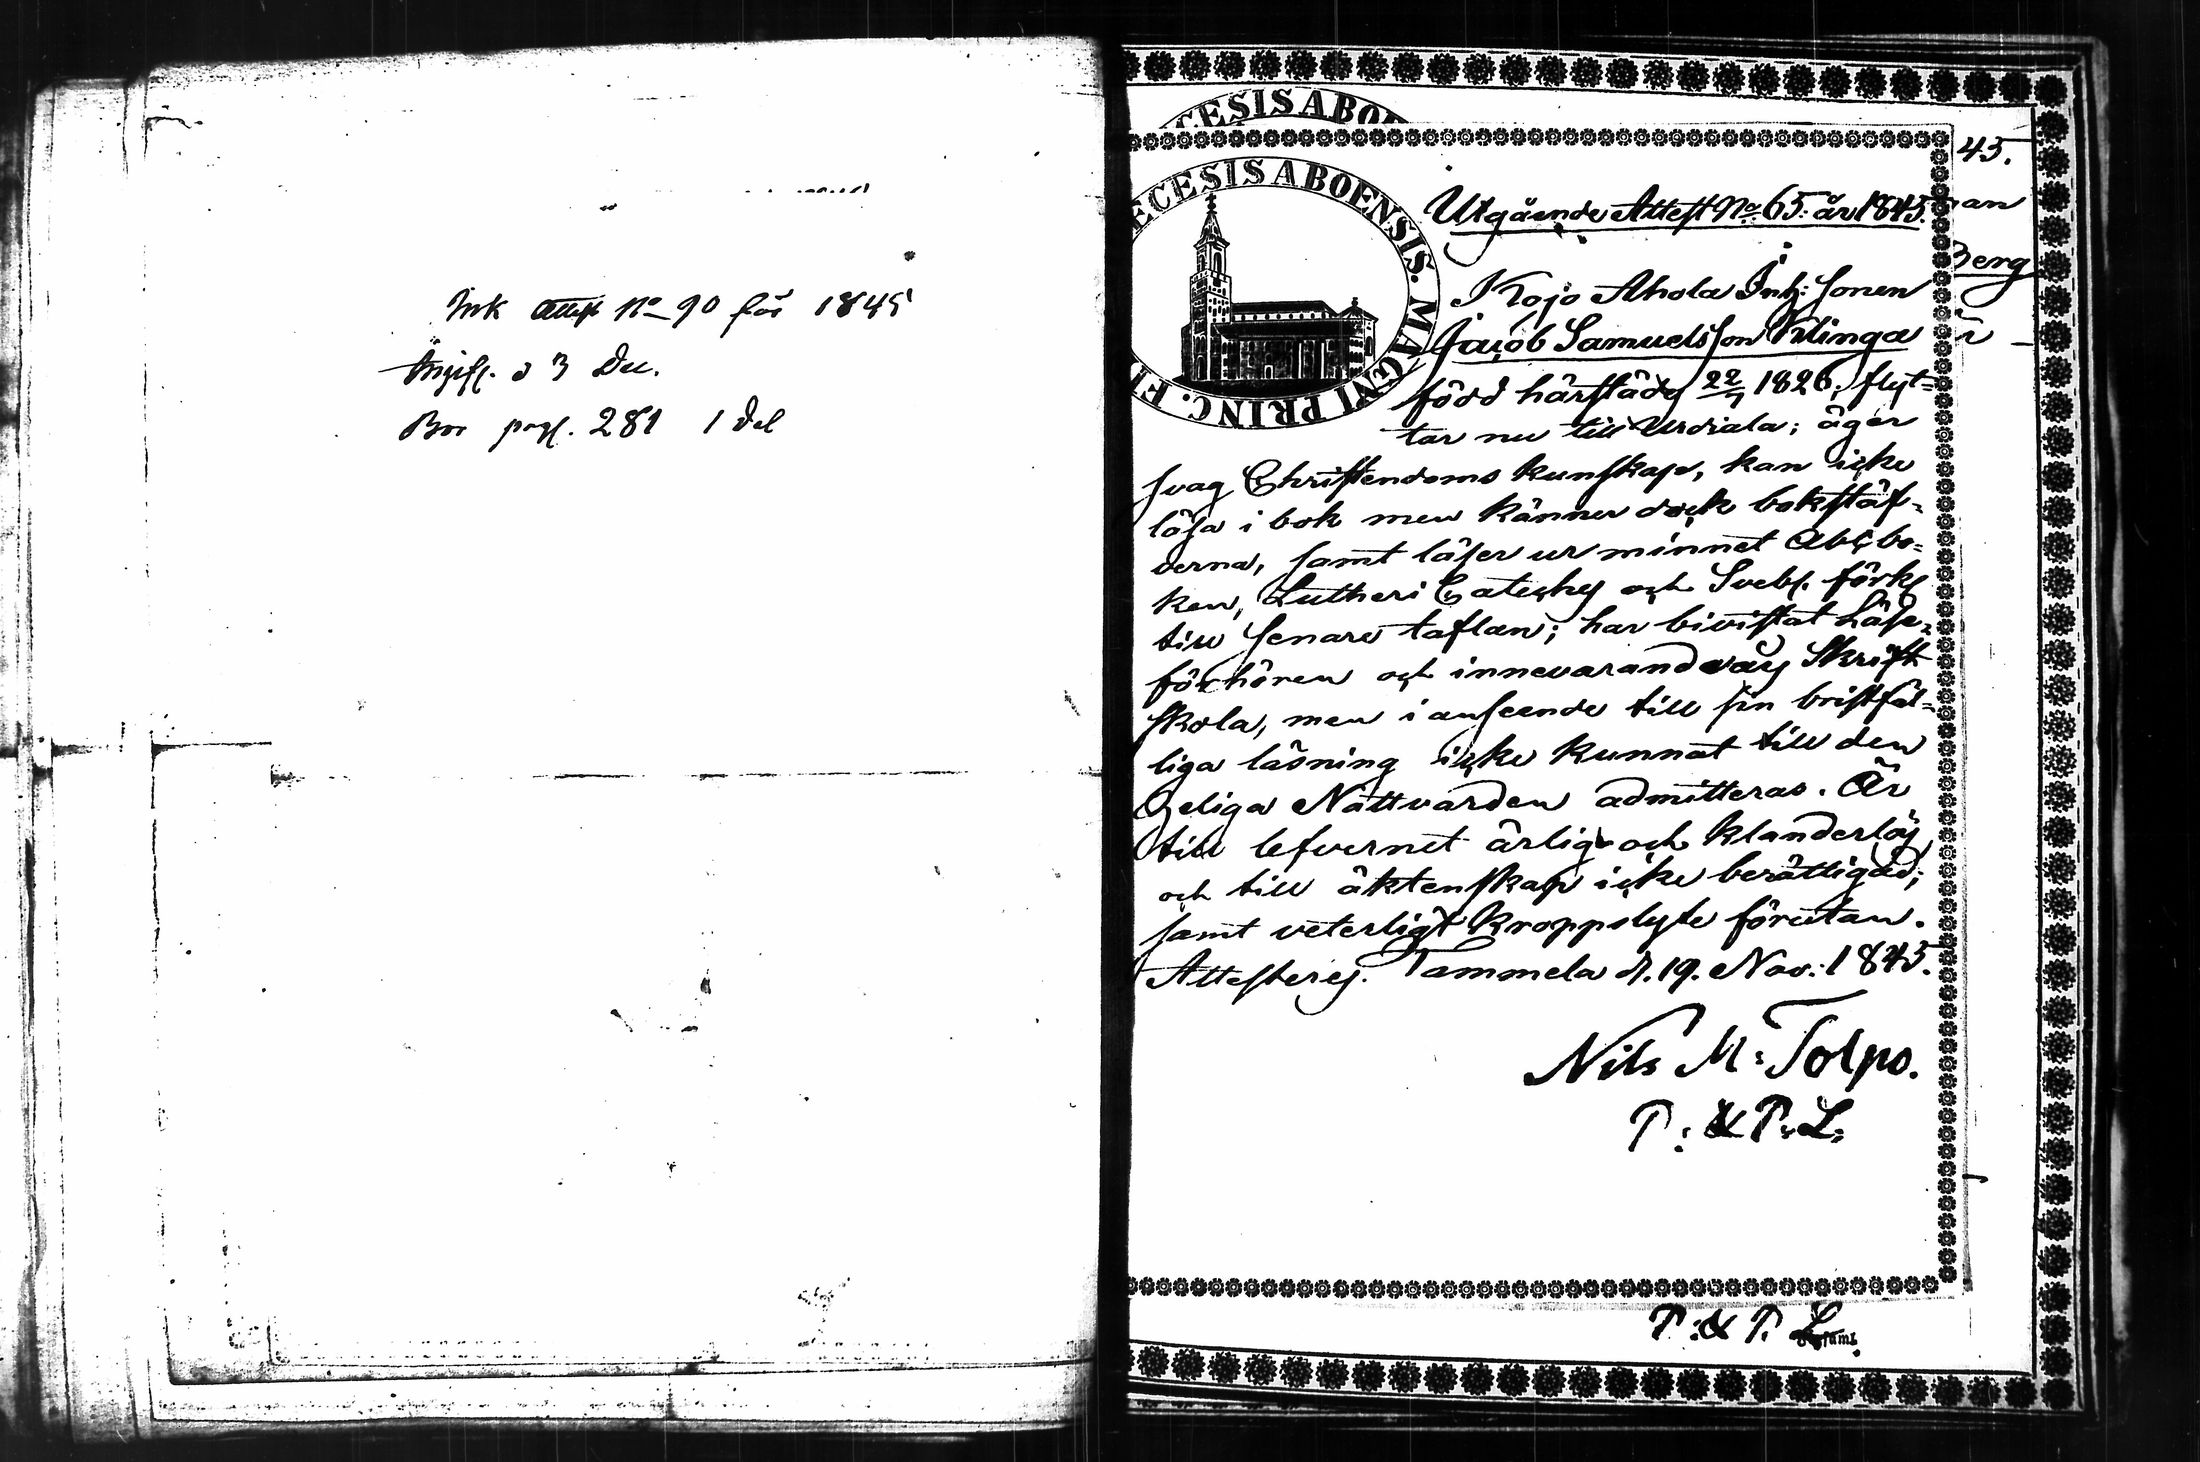 Ink attest No 90 för 1845
Angifs. d 3 Dec.
Bor pag. 281 1 Del
ECESIS ABOENSIS. MAGNI PRINC. FI
CESIS ABO
45.
an
Berg
Utgående Attest No 65. år 1845.
Kojo Ahola Inh: sonen
Jacob Samuelsson Klinga
född härstädes 22/7 1826, flyt-
tar nu till Urdiala; äger
svag Christendoms kunskap, kan icke
läsa i bok men känner dock bokstäf-
verna, samt läser ur minnet Abcbo-
ken, Lutheri Cateches och Sveb. förkl
till senare taflan; har bivistat Läse-
förhören och innevarande års Skrift
skola, men i anseende till sin bristfäl-
liga läsning icke kunnat till den
Heliga Nattvarden admitteras. Är
till lefvernet ärlig och klanderlös
och till äktenskap icke berättigad;
samt veterligt kroppslyte förutan.
Attesteras. Tammela d. 19. Nov: 1845.
Nils M: Tolpo.
P: & P: L:
P: & P. L.